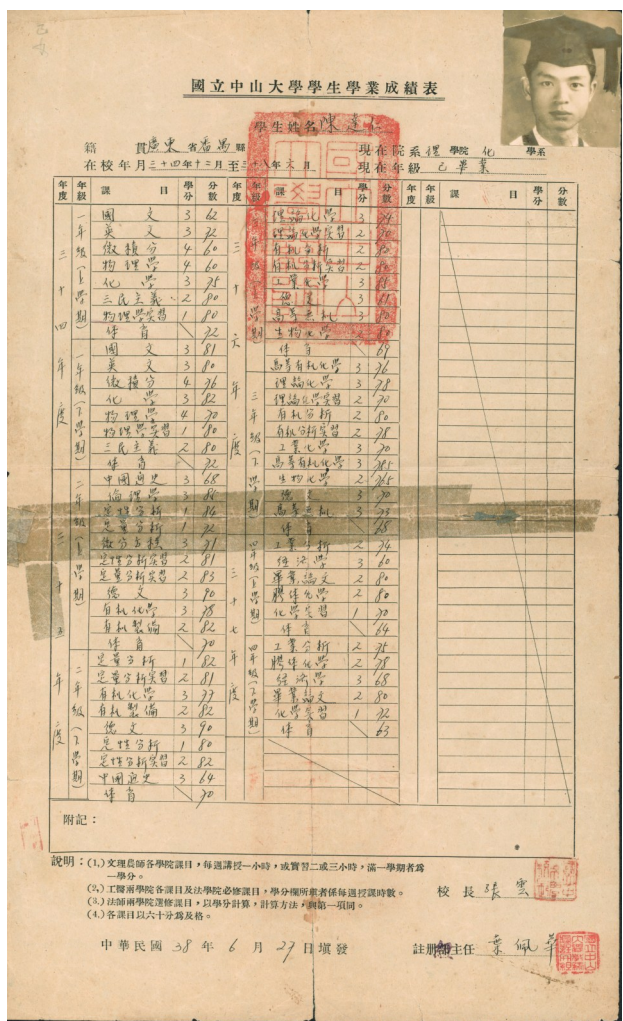 國立中山大學學生學業成績表
學生姓名 陳達仁
籍貫 廣東 省 番禺 縣 現在院系 理 學院 化 學系
在校年月 三十四年十二月至三十八年六月 現在年級 已畢業
年度 年級 課目 學分 分數 年度 年級 課目 學分 分數 年度 年級 課目 學分 分數
三十四年度
一年級(上學期)
國文 3 62
英文 3 72
微積分 4 60
物理學 4 60
化學 3 75
三民主義 2 80
物理學實習 1 80
体育 72
一年級(下學期)
國文 3 81
英文 3 80
微積分 4 76
化學 3 82
物理學 4 70
物理學實習 1 80
三民主義 2 80
体育 72
三十五年度
二年級(上學期)
中國通史 3 68
倫理學 3 86
定性分析 1 84
定量分析 1 72
微分方程 3 71
定性分析實習 2 81
定量分析實習 2 83
德文 3 90
有机化學 3 78
有机製備 2 82
体育 70
二年級(下學期)
定量分析 1 82
定量分析實習 2 81
有机化學 3 77
有机製備 2 82
德文 3 90
定性分析 1 80
定性分析實習 2 82
中國通史 3 64
体育 70
三十六年度
三年級(上學期)
理論化學 3 74
理論化學實習 2 70
有机分析 2 80
有机分析實習 2
工業化學 3
德文 3 61
高等無机 3 80
生物化學 2
体育 69
高等有机化學 3 76
三年級(下學期)
理論化學 3 78
理論化學實習 2 70
有机分析 2 80
有机分析實習 2 78
工業化學 3 70
高等有机化學 3 785
生物化學 2 765
德文 3 70
高等無机 3 73
体育 68
三十七年度
四年級(上學期)
工業分析 2 74
經濟學 3 60
畢業論文 2 80
膠体化學 2 80
化學實習 1 70
体育 64
四年級(下學期)
工業分析 2 75
膠体化學 2 78
經濟學 3 68
畢業論文 2 80
化學實習 1 72
体育 63
附記:
說明:(1.)文理農師各學院課目,每週講授一小時,或實習二或三小時,滿一學期者為
一學分。
(2.)工醫兩學院各課目及法學院必修課目,學分欄所載者係每週授課時數。
(3.)法師兩學院選修課目,以學分計算,計算方法,與第一項同。
(4.)各課目以六十分為及格。
校長 張雲
中華民國 38 年 6 月 27 日填發 註冊組主任 葉佩華